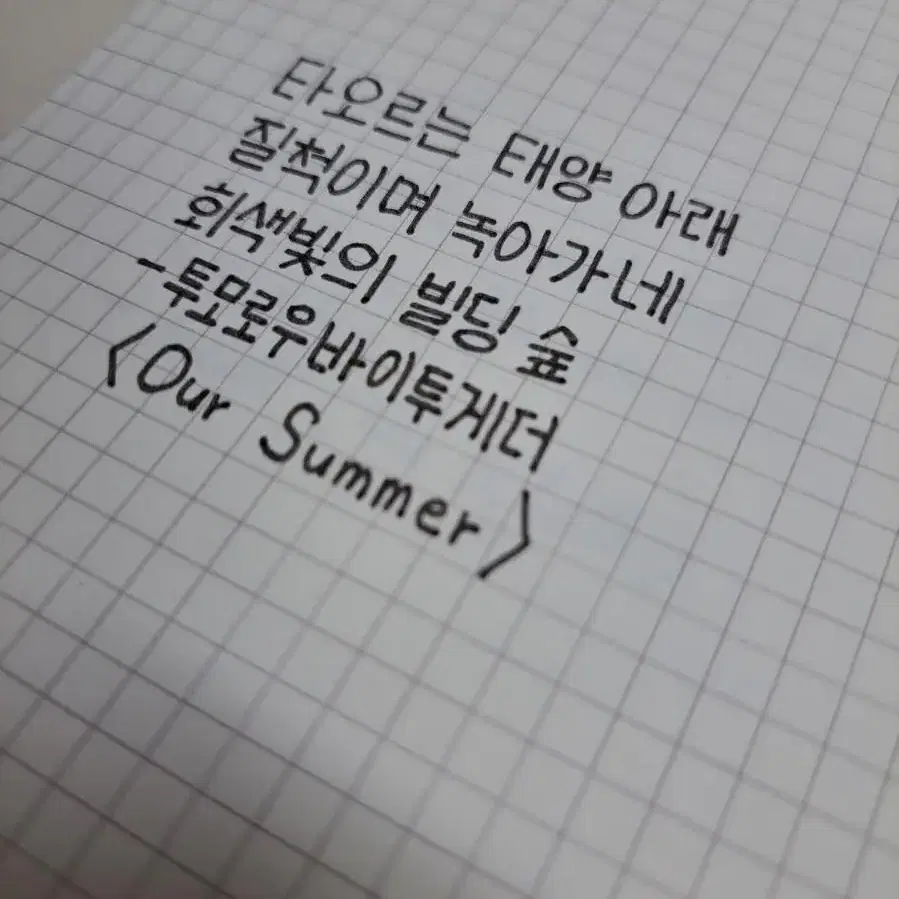 타오르는 태양 아래
질척이며 녹아가네
회색빛의 빌딩 숲
-투모로우바이투게더
〈Our Summer〉